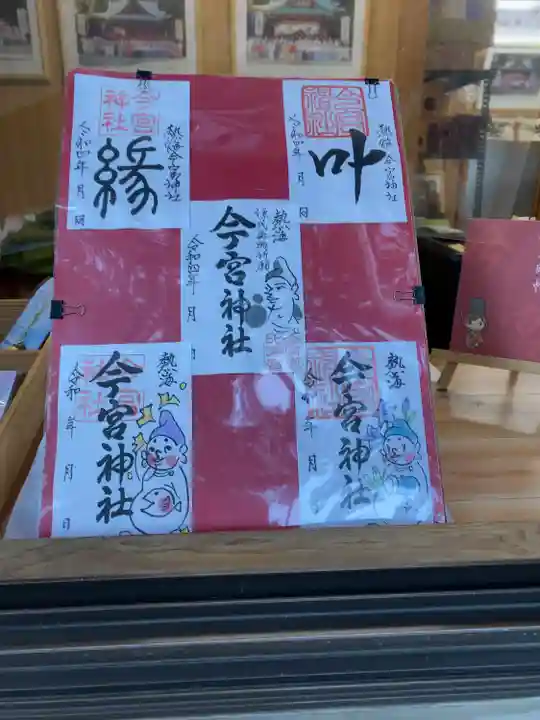 今宮
神社
熱海今宮神社
縁
令和四年 月 日
今宮
神社
熱海今宮神社
叶
令和四年 月 日
熱海
今宮神社
令和四年 月 日
熱海
今宮神社
令和 年 月 日
熱海
今宮神社
令和 年 月 日